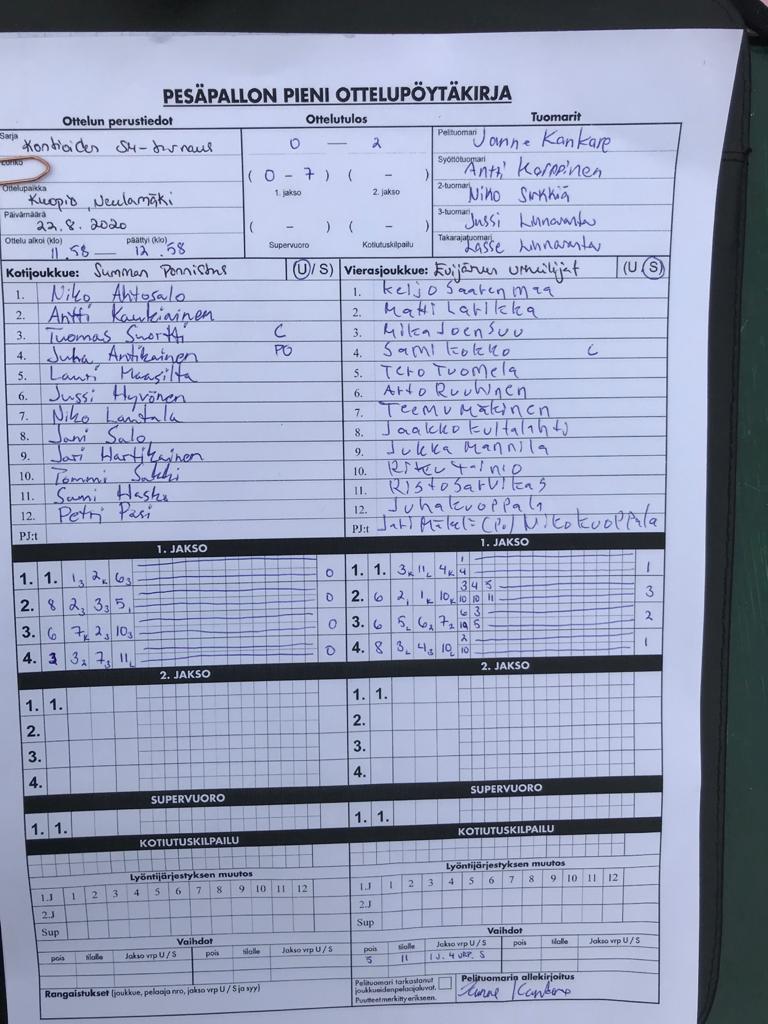 PESÄPALLON PIENI OTTELUPÖYTÄKIRJA
Ottelun perustiedot Ottelutulos Tuomarit
Sarja Kontioiden SM-turnaus 0 — 2 Pelituomari Janne Kankare
Lohko (0 - 7) ( - ) Syöttötuomari Antti Karppinen
Ottelupaikka Kuopio, Neulamäki 1. jakso 2. jakso 2-tuomari Niko Sirkkiä
Päivämäärä 22.8.2020 ( - ) ( - ) 3-tuomari Jussi Linnavirta
Ottelu alkoi (klo) 11.58 — päättyi (klo) 12.58 Supervuoro Kotiutuskilpailu Takarajatuomari Lasse Linnavirta
Kotijoukkue: Summan Ponnistus (U/S) Vierasjoukkue: Evijärven Urheilijat (U/S)
1. Niko Ahtosalo 1. Keijo Saarenmaa
2. Antti Kaukiainen 2. Matti Latikka
3. Tuomas Suortti C 3. Mika Joensuu
4. Juha Antikainen PO 4. Sami Kokko C
5. Lauri Maasilta 5. Tero Tuomela
6. Jussi Hyvönen 6. Arto Ruuhinen
7. Niko Lantala 7. Teemu Mäkinen
8. Jani Salo 8. Jaakko Kultalahti
9. Jari Hartikainen 9. Jukka Mannila
10. Tommi Sakki 10. Riku Tainio
11. Sami Haska 11. Risto Sarvikas
12. Petri Pasi 12. Juha Kuoppala
PJ:t PJ:t Jari Mäkelä (PO) / Niko Kuoppala
1. JAKSO 1. JAKSO
1. 1. 1₃ 2ₖ 6₃ 0 1. 1. 3ₖ 11ʟ 4ₖ 1 4 1
2. 8 2₃ 3₃ 5₁ 0 2. 6 2₁ 1ₖ 10ₖ 3 4 5 10 10 11 3
3. 6 7ₖ 2₃ 10₃ 0 3. 6 5ʟ 6₂ 7₂ 6 3 10 5 2
4. 3 3₂ 7₃ 11ʟ 0 4. 8 3ʟ 4₃ 10ʟ 2 10 1
2. JAKSO 2. JAKSO
1. 1. 1. 1.
2. 2.
3. 3.
4. 4.
SUPERVUORO SUPERVUORO
1. 1. 1. 1.
KOTIUTUSKILPAILU KOTIUTUSKILPAILU
Lyöntijärjestyksen muutos Lyöntijärjestyksen muutos
1.J 1 2 3 4 5 6 7 8 9 10 11 12 1.J 1 2 3 4 5 6 7 8 9 10 11 12
2.J 2.J
Sup Sup
Vaihdot Vaihdot
pois tilalle Jakso vrp U / S pois tilalle Jakso vrp U / S pois tilalle Jakso vrp U / S pois tilalle Jakso vrp U / S
5 11 1J. 4 VRP. S
Rangaistukset (joukkue, pelaaja nro, jakso vrp U / S ja syy) Pelituomari tarkastanut joukkueiden pelaajaluvat. Puutteet merkitty erikseen. Pelituomarin allekirjoitus
Janne Kankare